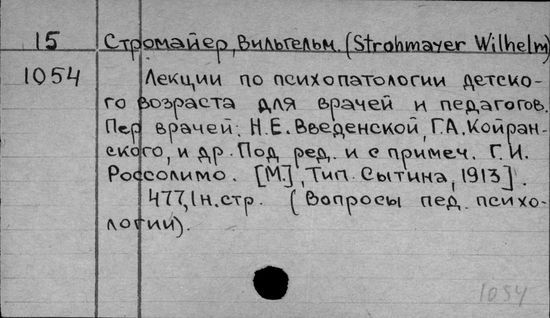 15 Стромайер, Вильгельм. (Strohmayer Wilhelm)
1054 Лекции по психопатологии детско-
го возраста для врачей и педагогов.
Пер врачей: Н.Е. Введенской, Г.А. Койран-
ского, и др. Под ред. и с примеч. Г.И.
Россолимо. [М.], Тип. Сытина, 1913].
477, 1 н. стр. (Вопросы пед. психо-
логии).
1054